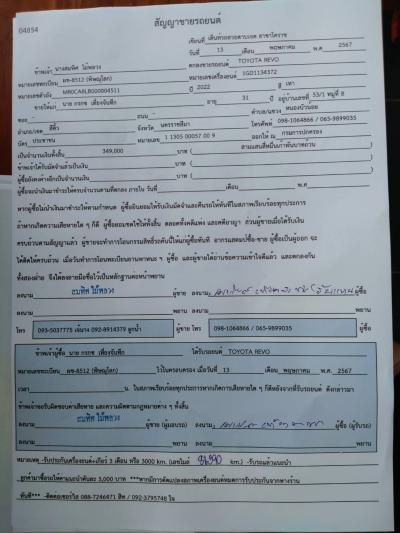 04854
สัญญาขายรถยนต์
เขียนที่ เต็นท์รถสวยตาบเดต สาขาโคราช
วันที่ 13 เดือน พฤษภาคม พ.ศ 2567
ข้าพเจ้า นางสมทิศ ไม้หลวง ตกลงขายรถยนต์ TOYOTA REVO
หมายเลขทะเบียน ผข-8512 (พิษณุโลก) หมายเลขเครื่องยนต์ 1GD1134372
หมายเลขตัวถัง MR0CA8LB000004511 ปี 2022 สี เทา
ขายให้แก่ นาย กรกช เที่ยงจันทึก อายุ 31 ปี อยู่บ้านเลขที่ 53/1 หมู่ที่ 8
ซอย - ถนน ตำบล/แขวง หนองบัวน้อย
อำเภอ/เขต สีคิ้ว จังหวัด นครราชสีมา โทรศัพท์ 098-1064866 / 065-9899035
บัตร ประชาชน หมายเลข 1 1305 00057 00 9 ออกให้ ณ กรมการปกครอง
เป็นจำนวนเงินทั้งสิ้น 349,000 บาท ( สามแสนสี่หมื่นเก้าพันบาทถ้วน )
ข้าพเจ้าได้รับมัดจำแล้วเป็นเงิน บาท ( )
ผู้ซื้อยังคงค้างอีกเป็นจำนวนเงิน บาท ( )
ผู้ซื้อจะนำเงินมาชำระให้ครบจำนวนตามที่ตกลง ภายใน วันที่ เดือน พ.ศ
หากผู้ซื้อไม่นำเงินมาชำระตามกำหนด ผู้ซื้อยินยอมให้ริบเงินมัดจำและคืนรถให้ทันทีในสภาพเรียบร้อยทุกประการ
ถ้าหากเกิดความเสียหายใด ๆ ก็ดี ผู้ซื้อยอมชดใช้ให้ทั้งสิ้น ตลอดทั้งคดีแพ่ง และคดีอาญา ส่วนผู้ขายเมื่อได้รับเงิน
ครบถ้วนตามสัญญาแล้ว ผู้ขายจะทำการโอนกรรมสิทธิ์รถคันนี้ให้แก่ผู้ซื้อทันที อากรแสตมป์ซื้อ-ขาย ผู้ซื้อเป็นผู้ออก จะ
ได้ติดให้ครบถ้วน เมื่อวันทำการโอนทะเบียนยานพาหนะ ฯ ผู้ซื้อ และผู้ขายได้อ่านข้อความเข้าใจดีแล้ว และตกลงกัน
ทั้งสองฝ่าย จึงได้ลงลายมือชื่อไว้เป็นหลักฐานต่อหน้าพยาน
ลงนาม สมทิศ ไม้หลวง ผู้ขาย ลงนาม ผู้ซื้อ
ลงนาม พยาน ลงนาม พยาน
โทร 093-5037775 092-8914379 ลูกน้ำ ผู้ขาย โทร 098-1064866 / 065-9899035 ผู้ซื้อ
ข้าพเจ้าผู้ซื้อ นาย กรกช เที่ยงจันทึก ได้รับรถยนต์ TOYOTA REVO
หมายเลขทะเบียน ผข-8512 (พิษณุโลก) ไว้ในครอบครอง เมื่อวันที่ 13 เดือน พฤษภาคม พ.ศ. 2567
เวลา น. ในสภาพเรียบร้อยทุกประการหากเกิดการเสียหายใด ๆ ก็ดีหลังจากที่รับรถยนต์ ดังกล่าวมา
ข้าพเจ้าขอรับผิดชอบค่าเสียหาย และความผิดตามกฎหมายต่าง ๆ ทั้งสิ้น
ลงนาม สมทิศ ไม้หลวง ผู้ขาย (ผู้มอบรถ) ลงนาม ผู้ซื้อ (ผู้รับรถ)
ลงนาม พยาน ลงนาม พยาน
หมายเหตุ -รับประกันเครื่องยนต์+เกียร์ 3 เดือน หรือ 3000 km. (เลขไมล์ km.) -รับรถแล้วแนะนำ
ลูกค้ามาซื้อรถให้ค่าแนะนำคันละ 3,000 บาท ***หากมีการดัดแปลงสภาพเครื่องยนต์หมดการรับประกันจากทางร้าน
ทันที*** -ติดต่อเซอร์วิส 088-7246471 สิท / 092-3795748 ใจ